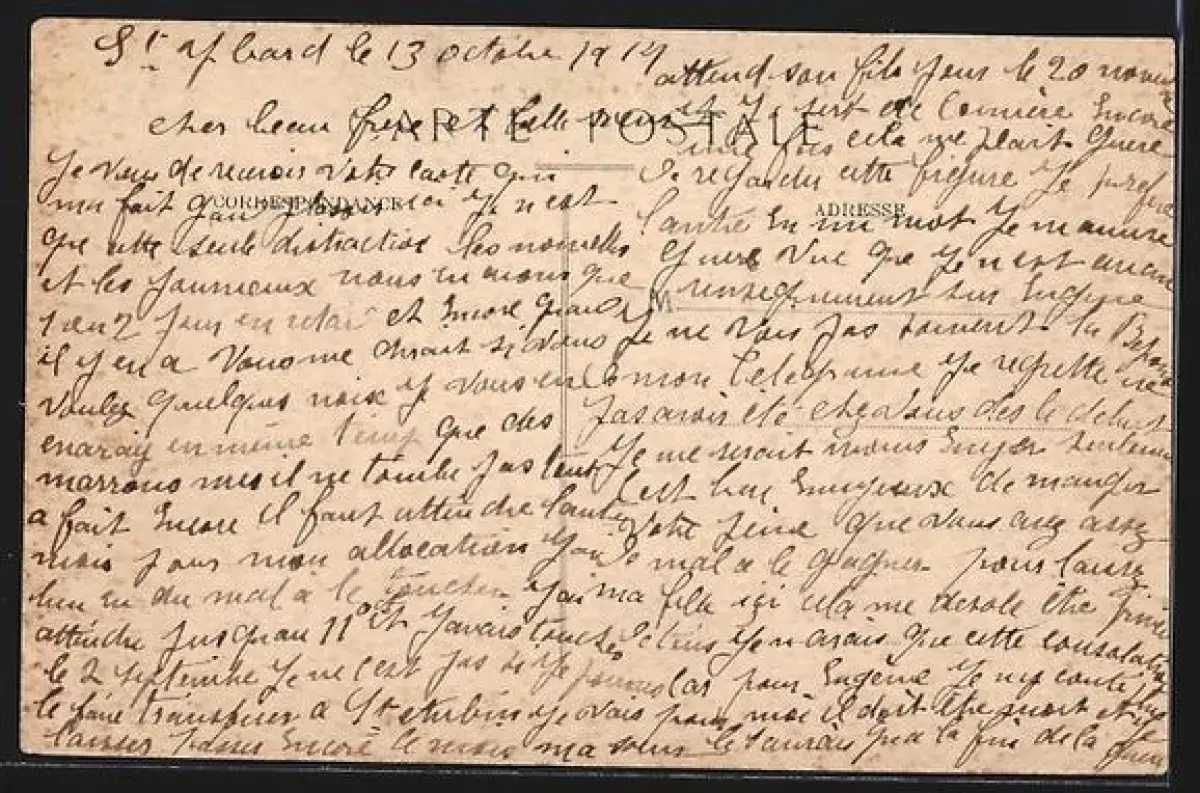 St Ybard le 13 octobre 1914
CARTE POSTALE
CORRESPONDANCE
ADRESSE
M
cher beau frère et belle soeur
Je viens de recevoir votre carte qui
ma fait gran plaisir car je n est
que cette seule distraction les nouvelles
et les journeaux nous en avons que
1 en 2 jour en retar et encore quan
il y en a Vous me dirait si vous
voulez quelques noix j vous en
enveray en même temp que des
marrons mes il ne tombe pas tout
a fait encore il faut attendre lautre
mois pour mon allocation j ai
bien eu du mal à le toucher jai
attendre jusquau 11 oct javais touché
le 2 septembre je ne cest pas si je pourrai
le faire transferer a St Aubin je vais
laisser passer encore le mois ma soeur
attend son fils pour le 20 novem
et y sert de Comière encore
une fois cela me plait guere
de regarder cette figure je prefere
l autre En un mot je m amuse
guere vue que je n est aucun
renseignement sur Eugène
je ne vois pas souvent la Repon
a mon Telegrame je regrette ne
pas avoir été chez vous dès le debut
je me serait moins ennyer seulemen
cest bien ennyeux de manger
votre peine que vous avez assez
de mal a le gagner pour laisse
ma fille ici cela me desole être privé
de tous je n avais que cette consolation
car pour Eugène je n y conte plus
pour moi il doit être mort et je
le saurais qua la fin de la guerre